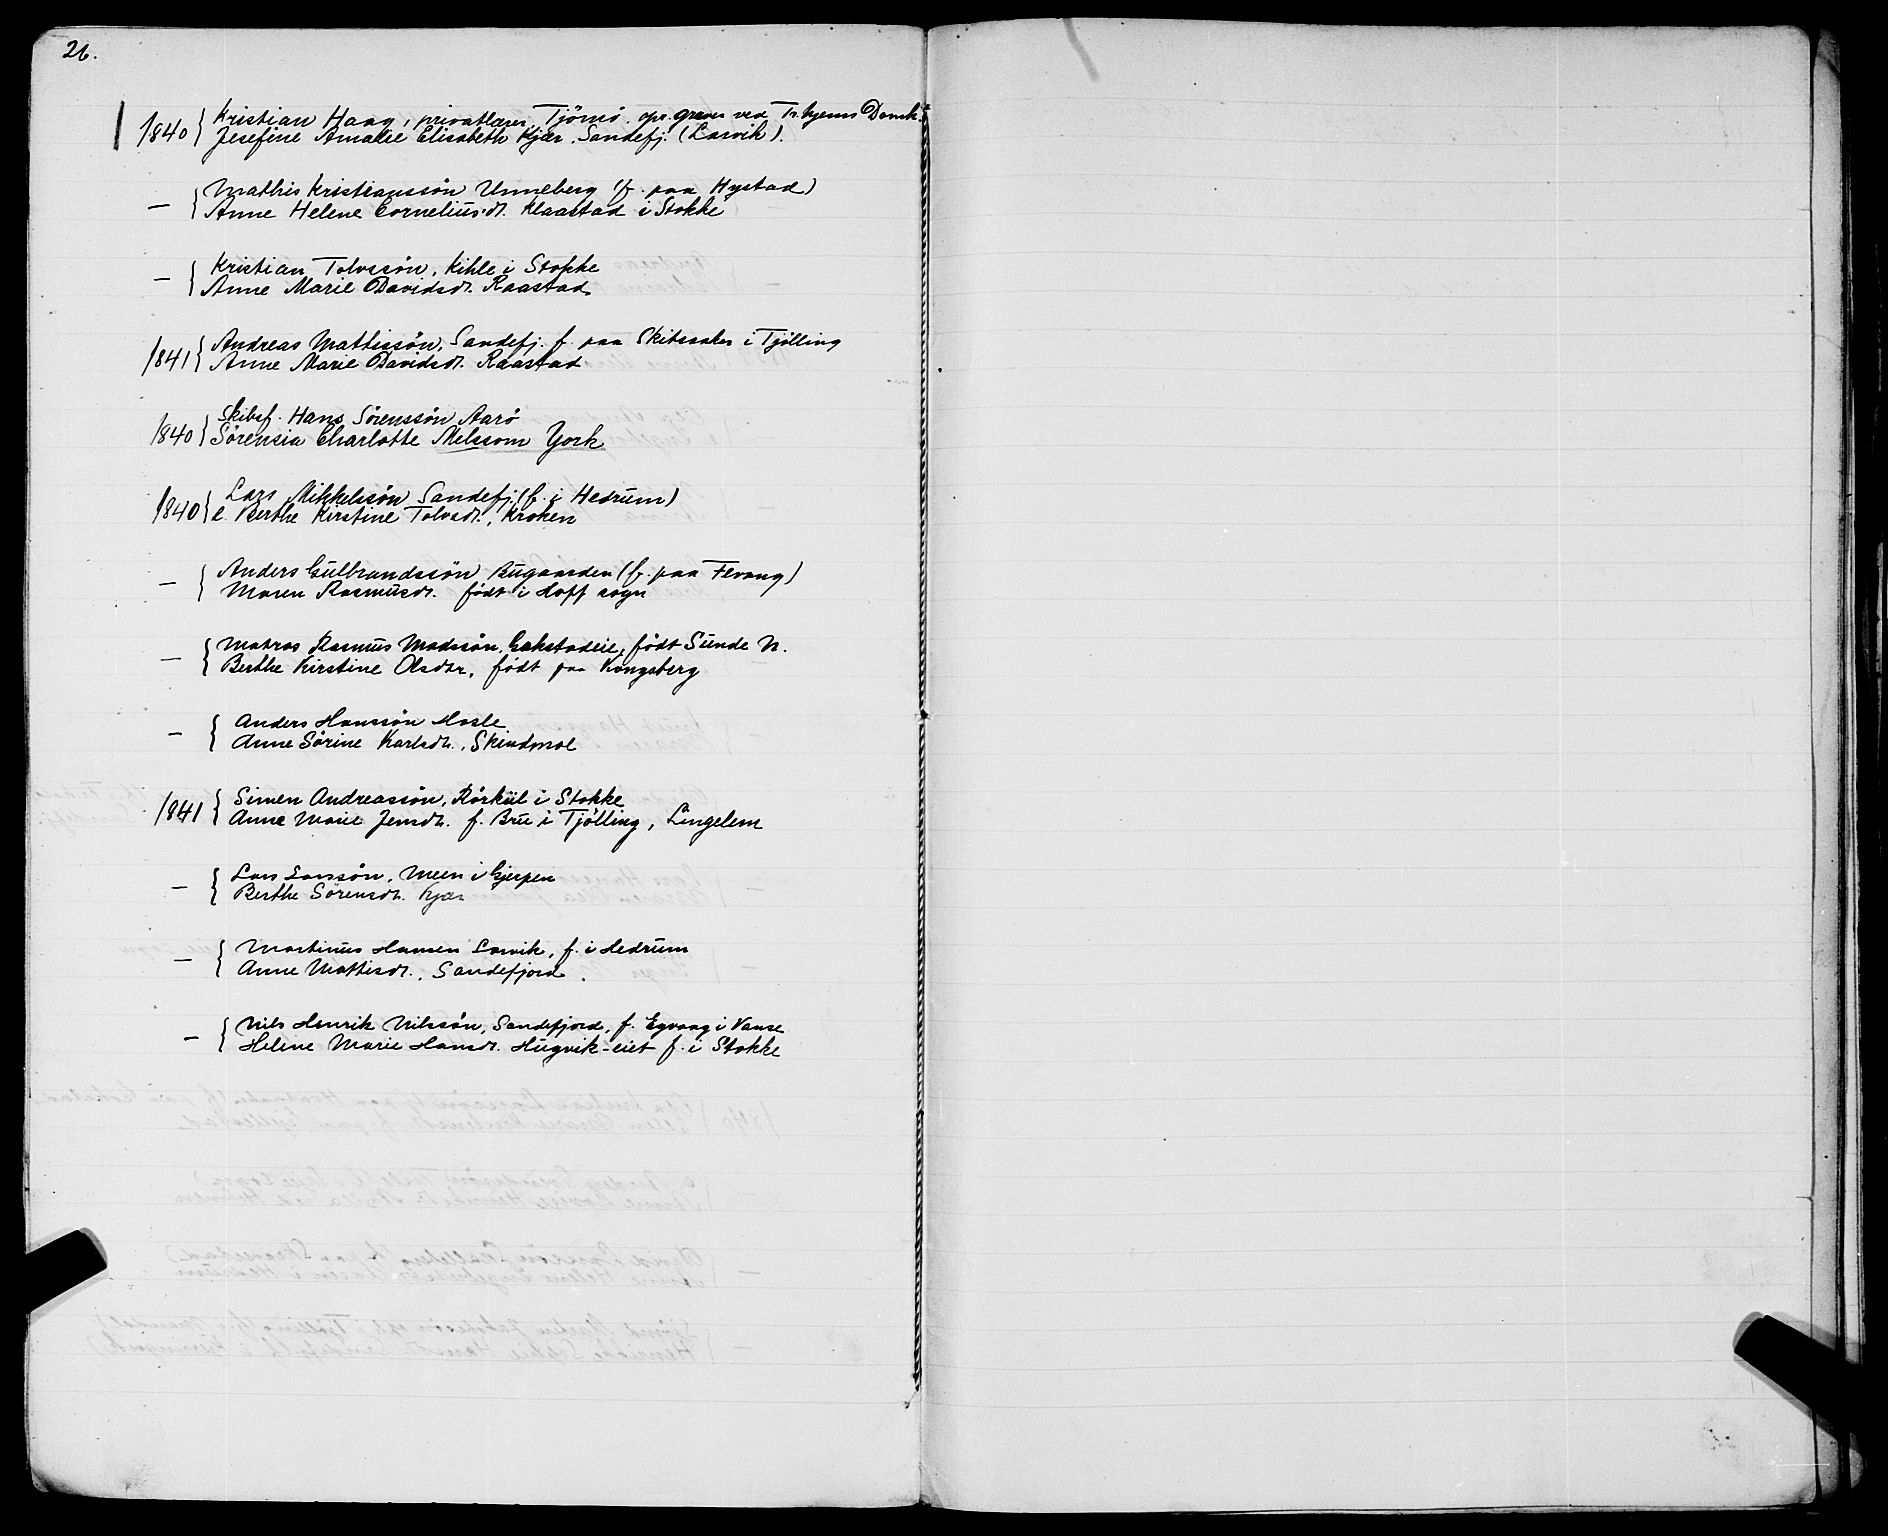 26.
1840 { Kristian Haag, privatlærer, Tjömö. opr. graver ved Tr.hjems Domk.
Josefine Amalie Elisabeth Kjær. Sandefj. (Larvik).
— { Mathis Kristianssön Unneberg (f. paa Hystad)
Anne Helene Corneliusdt. Klaastad i Stokke
— { Kristian Tolvssön, Kihle i Stokke
Anne Marie Davidsdt. Raastad
1841 { Andreas Mathissön, Sandefj. f. paa i Tjölling
Anne Marie Davidsdt. Raastad
1840 { Skibsf. Hans Sörenssön Aarö
Sörensia Charlotte Melssom York
1840 { Lars Mikkelssön Sandefj. (f. i Hedrum)
e. Berthe Kirstine Tolvsdt., Kroken
— { Anders Gulbrandssön Bugaarden (f. paa Fevang)
Maren Rasmusdt. födt i Hoff sogn
— { Matros Rasmus Madssön, Gokstadeie, födt Sunde N.
Berthe Kirstine Olsdtr, födt paa Kongsberg
— { Anders Hanssön Hasle
Anne Sörine Karlsdt., Skindmol
1841 { Simen Andreassön, Rörkül i Stokke
Anne Marie Jensdt. f. Bru i Tjölling, Lingelem
— { Lars Larssön, Meen i Gjerpen
Berthe Sörensdt. Kjær
— { Martinus Hansen Larvik, f. i Hedrum
Anne Mathisdt., Sandefjord.
— { Nils Henrik Nilssön, Sandefjord, f. Egvaag i Vanse
Heline Marie Hansdt. Hugvik-eiet f. i Stokke